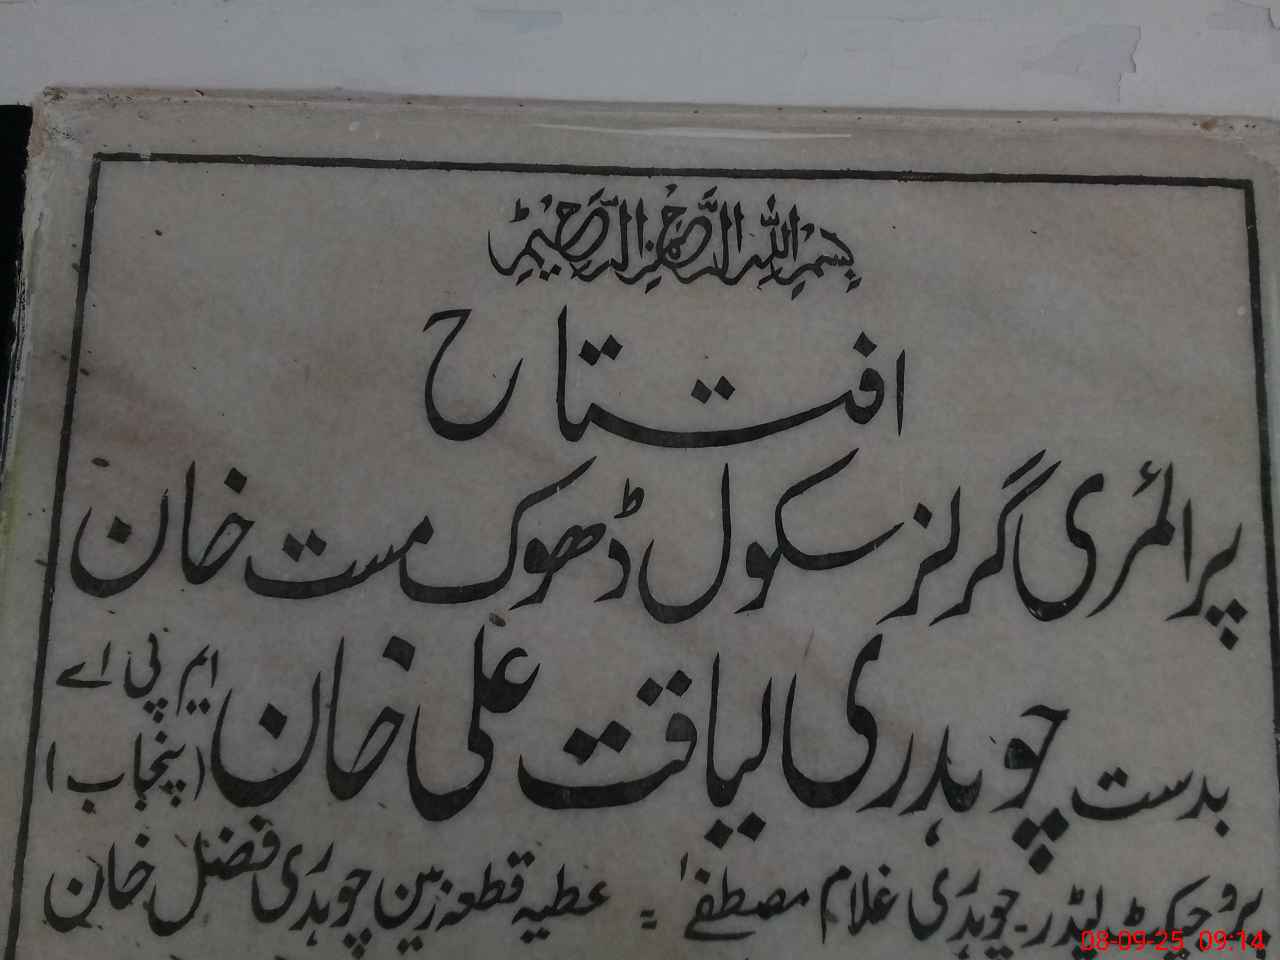 بسم اللہ الرحمن الرحیم
افتتاح
پرائمری گرلز سکول ڈھوک مست خان
بدست چوہدری لیاقت علی خان ایم پی اے (پنجاب)
پروجیکٹ لیڈر۔ چوہدری غلام مصطفےٰ = عطیہ قطعہ زمین چوہدری فضل خان
08-09-25 09:14